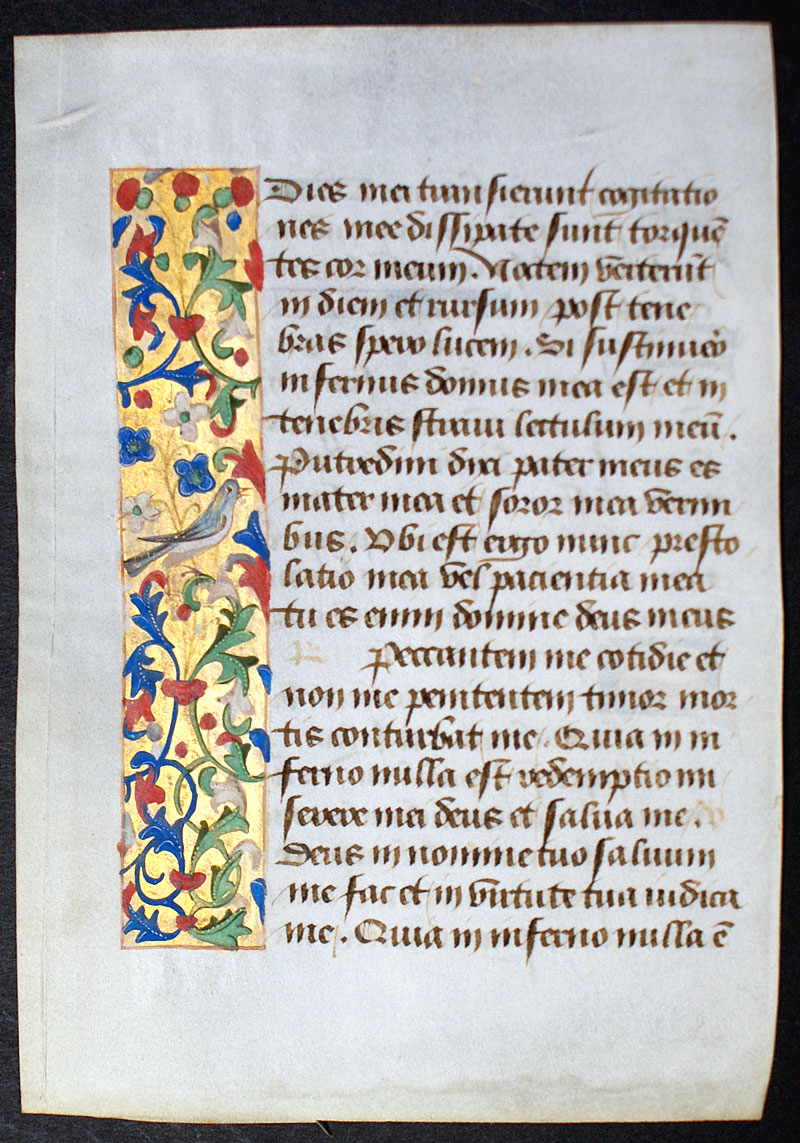 Dies mei transierunt cogitatio
nes mee dissipate sunt torquē
tes cor meum. Noctem verterūt
in diem et rursum post tene
bras spero lucem. Si sustinuero
infernus domus mea est et in
tenebris stravi lectulum meū.
Putredini dixi pater meus es
mater mea et soror mea vermi
bus. Ubi est ergo nunc presto
latio mea vel paciencia mea
tu es enim domine deus meus
R Peccantem me cotidie et
non me penitentem timor mor
tis conturbat me. Quia in in
ferno nulla est redemptio mi
serere mei deus et salva me. V
Deus in nomine tuo salvum
me fac et in virtute tua iudica
me. Quia in inferno nulla ē